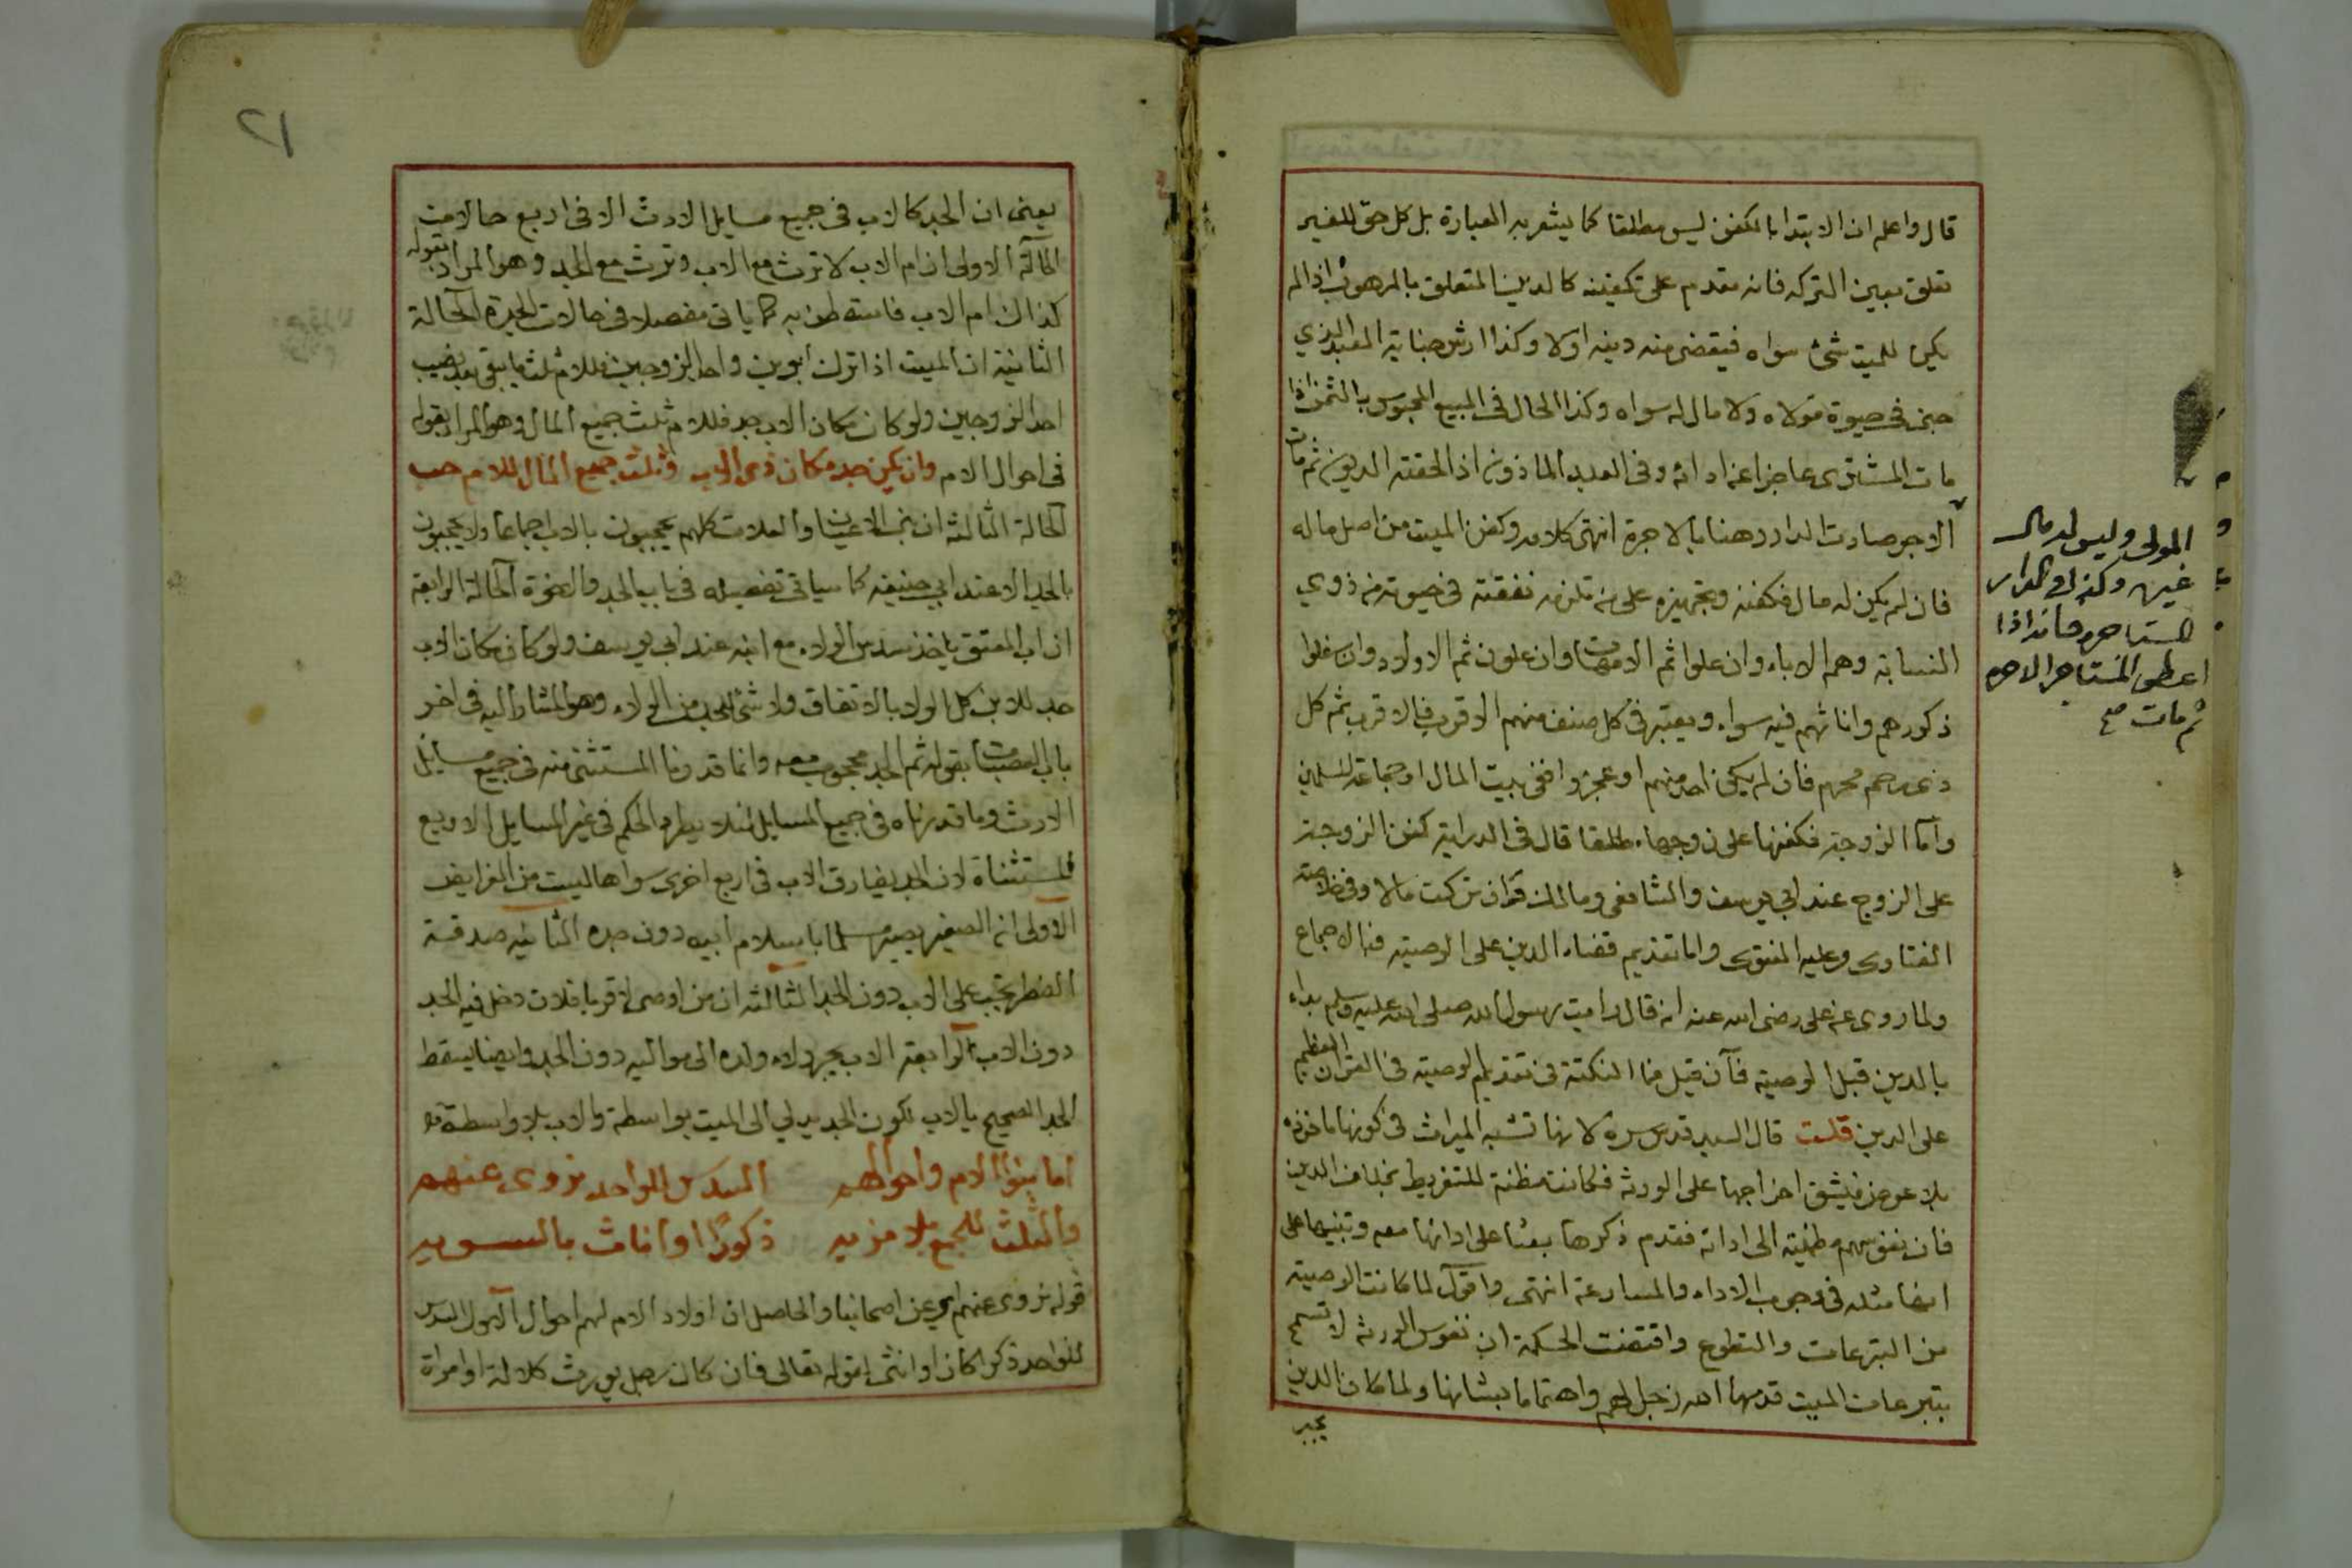 قال واعلم ان الابتدا بالكفن ليس مطلقا كما يشعر به العبارة بل كل حق للغير
تعلق بعين التركه فانه مقدم على تكفينه كالدين المتعلق بالمرهون اذا لم
يكن للميت شئ سواه فيقضى منه دينه اولا وكذا ارش جناية العبد الذي
جنى فى حيوة مولاه ولا مال له سواه وكذا الحال فى المبيع المحبوس بالثمن اذا
مات المشترى عاجزا عن ادائه وفى العبد الماذون اذا لحقته الديون ثم مات
الاجر صارت الدار رهنا بالاجرة انتهى كلامه وكفن الميت من اصل ماله
فان لم يكن له مال فكفنه وتجهيزه على من تلزمه نفقته فى حيوته من ذوي
النسابة وهم الاباء وان علوا ثم الامهات وان علون ثم الاولاد وان سفلوا
ذكورهم واناثهم فيه سواء ويعتبر فى كل صنف منهم الاقرب فالاقرب ثم كل
ذى رحم محرم فان لم يكن احد منهم او عجزوا ففى بيت المال او جماعة المسلمين
واما الزوجة فكفنها على زوجها مطلقا قال فى الدراية كفن الزوجة
على الزوج عند ابي يوسف والشافعى ومالك وان تركت مالا وفى خلاصة
الفتاوى وعليه الفتوى واما تقديم قضاء الدين على الوصية فبالاجماع
ولما روى عن على رضى الله عنه انه قال رايت رسول الله صلى الله عليه وسلم بداء
بالدين قبل الوصية فان قيل فما النكتة فى تقديم الوصية فى القران العظيم
على الدين قلت قال السيد قدس سره لانها تشبه الميراث فى كونها ماخوذه
بلا عوض فيشق اخراجها على الورثة فكانت مظنة للتفريط بخلاف الدين
فان نفوسهم مطمئنة الى ادائه فقدم ذكرها بعثا على ادائها معه وتنبيها على
انها مثله فى وجوب الاداء والمسارعة انتهى واقول لما كانت الوصية
من التبرعات والتطوع واقتضت الحكمة ان نفوس الورثة لا تسمح
بتبرعات الميت قدمها الله زجرا لهم واهتماما بشانها ولما كان الدين
يجبر
المولى وليس له مال
غيره وكذا فى الدار
المستاجره فانه اذا
اعطى المستاجر الاجره
ثم مات صح
٢١
يعنى ان الجد كالاب فى جميع مسايل الارث الا فى اربع حالات
الحالة الاولى ان ام الاب لا ترث مع الاب وترث مع الجد وهو المراد بقوله
كذاك ام الاب فاسقطن به كما ياتى مفصلا فى حالات الجدة الحالة
الثانية ان الميت اذا ترك ابوين واحد الزوجين فللام ثلث ما يبقى بعد نصيب
احد الزوجين ولو كان مكان الاب جد فللام ثلث جميع المال وهو المراد بقوله
فى احوال الام وان يكن جد مكان ذى الاب فثلث جميع المال للام حب
الحالة الثالثة ان بنى الاعيان والعلات كلهم يحجبون بالاب اجماعا ولا يحجبون
بالجد الا عند ابي حنيفه كما سياتى تفصيله فى باب الجد والاخوة الحالة الرابعة
ان اب المعتق ياخذ سدس الولاء مع ابنه عند ابي يوسف ولو كان مكان الاب
جد للابن كل الولا بالاتفاق ولا شئ للجد من الولاء وهو المشار اليه فى اخر
باب العصبات بقوله ثم الجد محجوب معه وانما قدرنا المستثنى منه فى جميع مسايل
الارث وما قدرناه فى جميع المسايل لئلا يطرد الحكم فى غير المسايل الاربع
المستثناة لان الجد يفارق الاب فى اربع اخرى سواها ليست من الفرايض
الاولى ان الصغير يصير مسلما باسلام ابيه دون جده الثانيه صدقة
الفطر تجب على الاب دون الجد الثالثه ان من اوصى لاقربا فلان دخل فيه الجد
دون الاب الرابعة الاب يجر ولاء ولده الى مواليه دون الجد وايضا يسقط
الجد الصحيح بالاب لكون الجد يدلي الى الميت بواسطة والاب بلا واسطة
اما بنوا الام واحوالهم السدس للواحد نروى عنهم
والثلث للجمع بلا مزيد ذكورا او اناث بالسويه
قوله نروى عنهم اي عن اصحابنا والحاصل ان اولاد الام لهم احوال الاول السدس
للواحد ذكرا كان او انثى لقوله تعالى فان كان رجل يورث كلالة او امراة